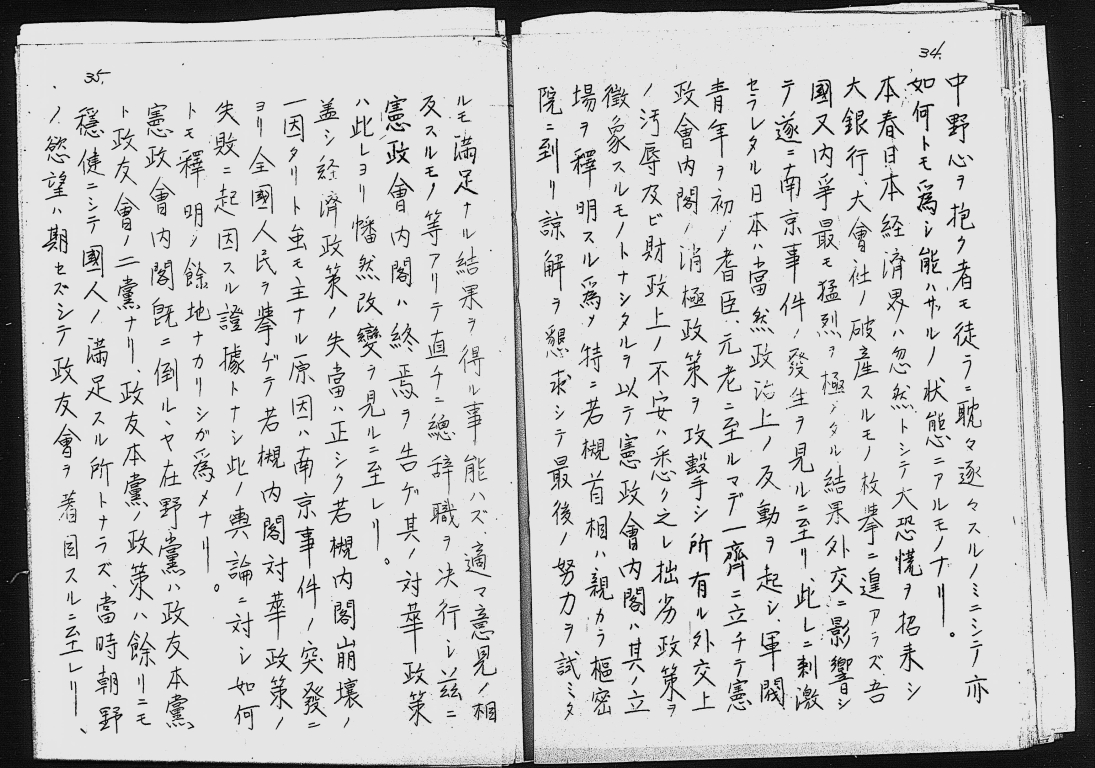 34.
中野心ヲ抱ク者モ徒ラニ耽々逐々スルノミニシテノ亦
如何トモ爲シ能ハザルノ状態ニアルモノナリ。
本春日本経濟界ハ忽然トシテ大恐慌ヲ招来シ
大銀行、大會社ノ破産スルモノ枚擧ニ遑アラズ吾
國又内爭最モ猛烈ヲ極メタル結果外交ニ影響シ
テ遂ニ南京事件ノ發生ヲ見ルニ至リ、此レニ刺激
セラレタル日本ハ當然政治上ノ反動ヲ起シ、軍閥
青年ヲ初メ耆臣、元老ニ至ルマデ一齊ニ立チテ憲
政會内閣ノ消極政策ヲ攻擊シ所有ル外交上
ノ汚辱及ビ財政上ノ不安ハ悉ク之レ拙劣政策ヲ
徴象スルモノトナシタルヲ以テ憲政會内閣ハ其ノ立
場ヲ釋明スル爲メ特ニ若槻首相ハ親カラ樞密
院ニ到リ諒解ヲ懇求シテ最後ノ努力ヲ試ミタ
35.
ルモ滿足ナル結果ヲ得ル事能ハズ、適マ意見ノ相
反スルモノ等アリテ直チニ總辞職ヲ決行シ茲ニ
憲政會内閣ハ終焉ヲ告ゲ其ノ対華政策
ハ此レヨリ幡然改變ヲ見ルニ至レリ。
盖シ経濟政策ノ失當ハ正シク若槻内閣崩壞ノ
一因タリト虽モ主ナル原因ハ南京事件ノ突發ニ
ヨリ全國人民ヲ擧ゲテ若槻内閣対華政策ノ
失敗ニ起因スル證據トナシ此ノ輿論ニ対シ如何
トモ釋明シ餘地ナカリシガ爲メナリ。
憲政會内閣旣ニ倒ルヽヤ在野黨ハ政友本黨
ト政友會ノ二黨ナリ、政友本黨ノ政策ハ餘リニモ
穩健ニシテ國人ノ滿足スル所トナラズ、當時朝野
ノ慾望ハ期セズシテ政友會ヲ着目スルニ至レリ、